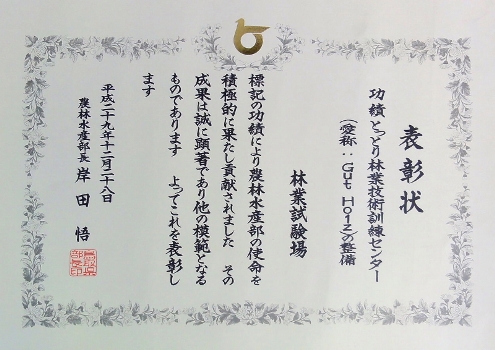 表彰状
功績 とっとり林業技術訓練センター
（愛称：Gut Holz）の整備
林業試験場
標記の功績により農林水産部の使命を
積極的に果たし貢献されました その
成果は誠に顕著であり他の模範となる
ものであります よってこれを表彰し
ます
平成二十九年十二月二十八日
農林水産部長 岸田 悟